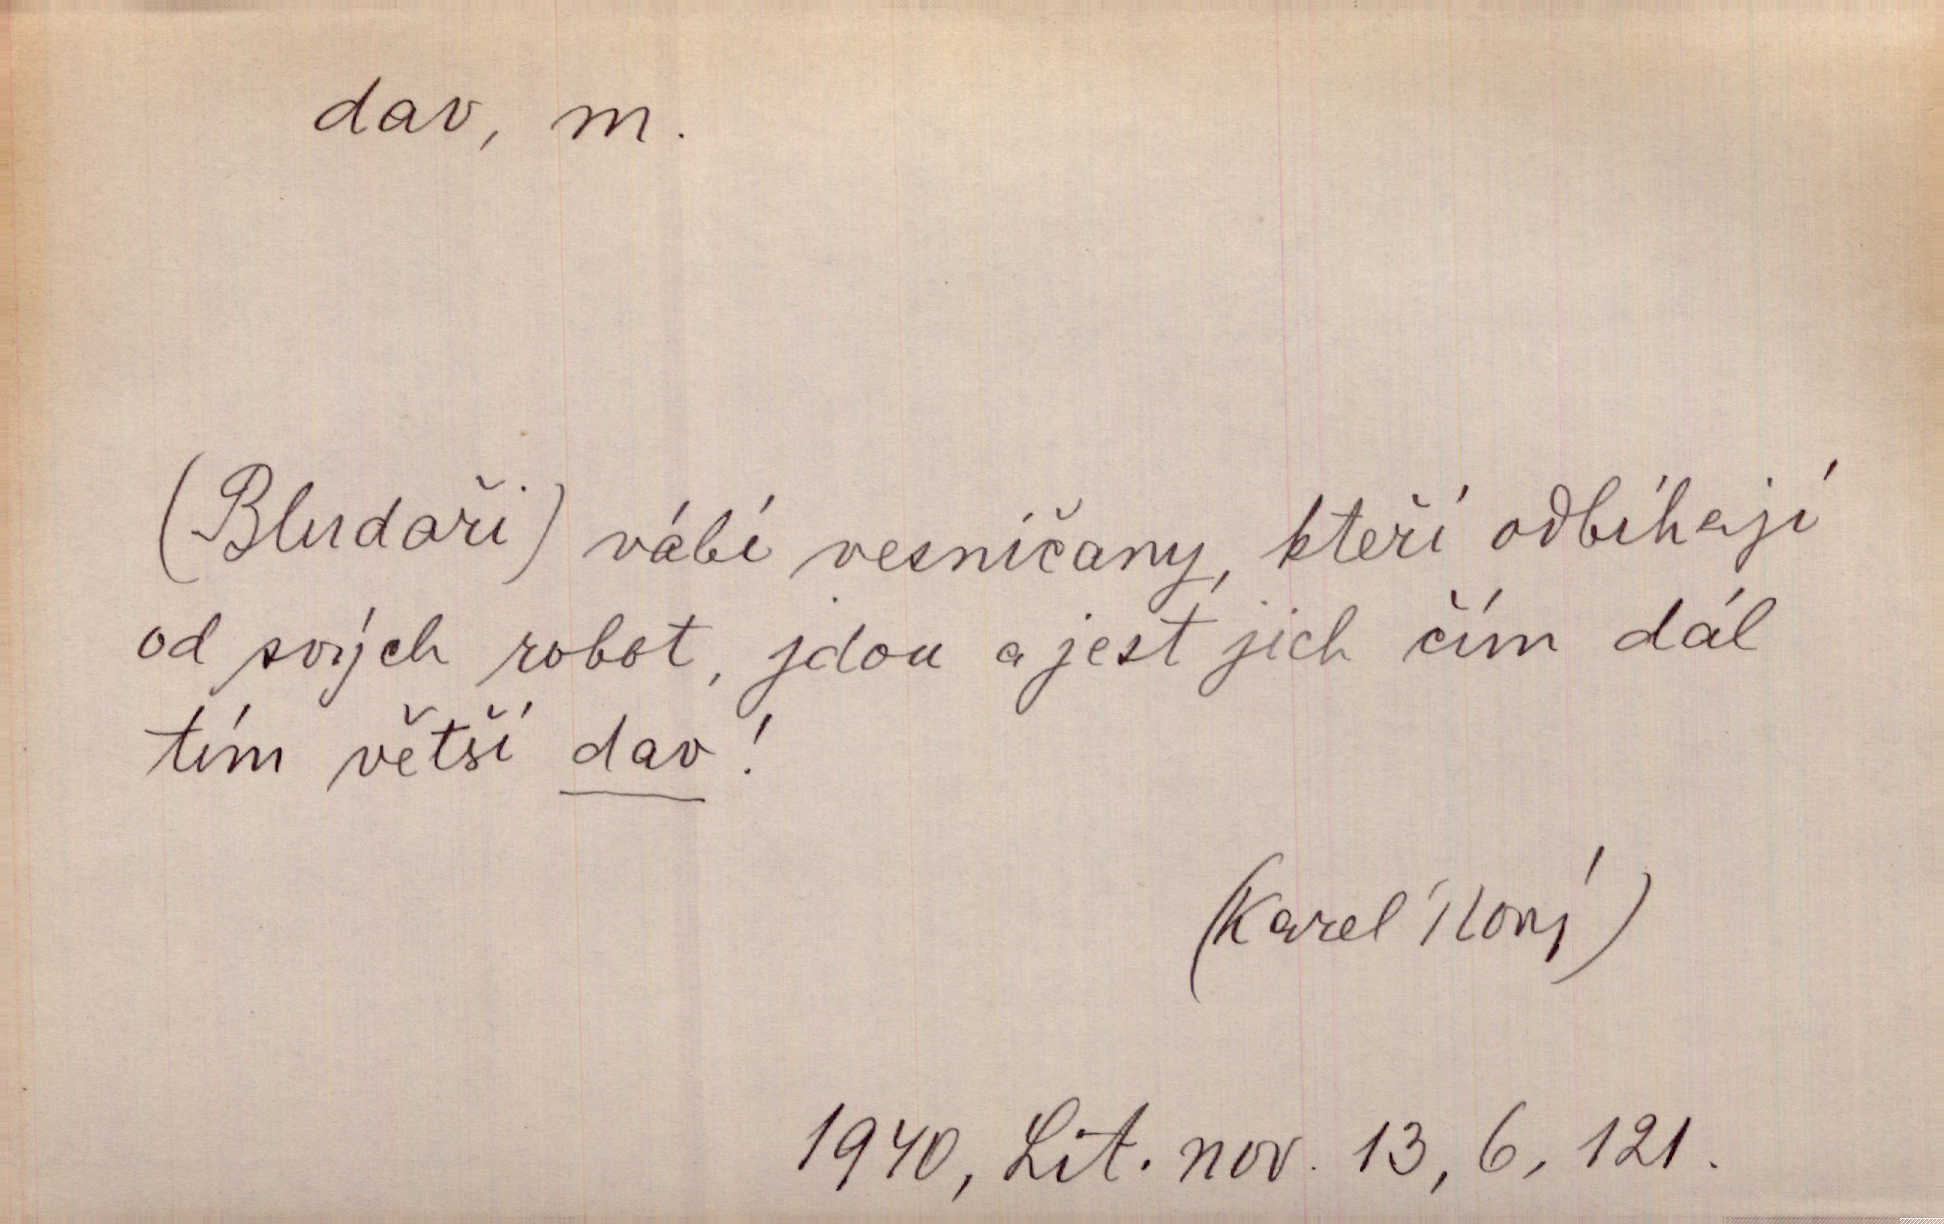 dav, m.
(Bludaři) vábí vesničany, kteří odbíhají
od svých robot, jdou a jest jich čím dál
tím větší dav!
(Karel Nový)
1940, Lit. nov. 13, 6, 121.